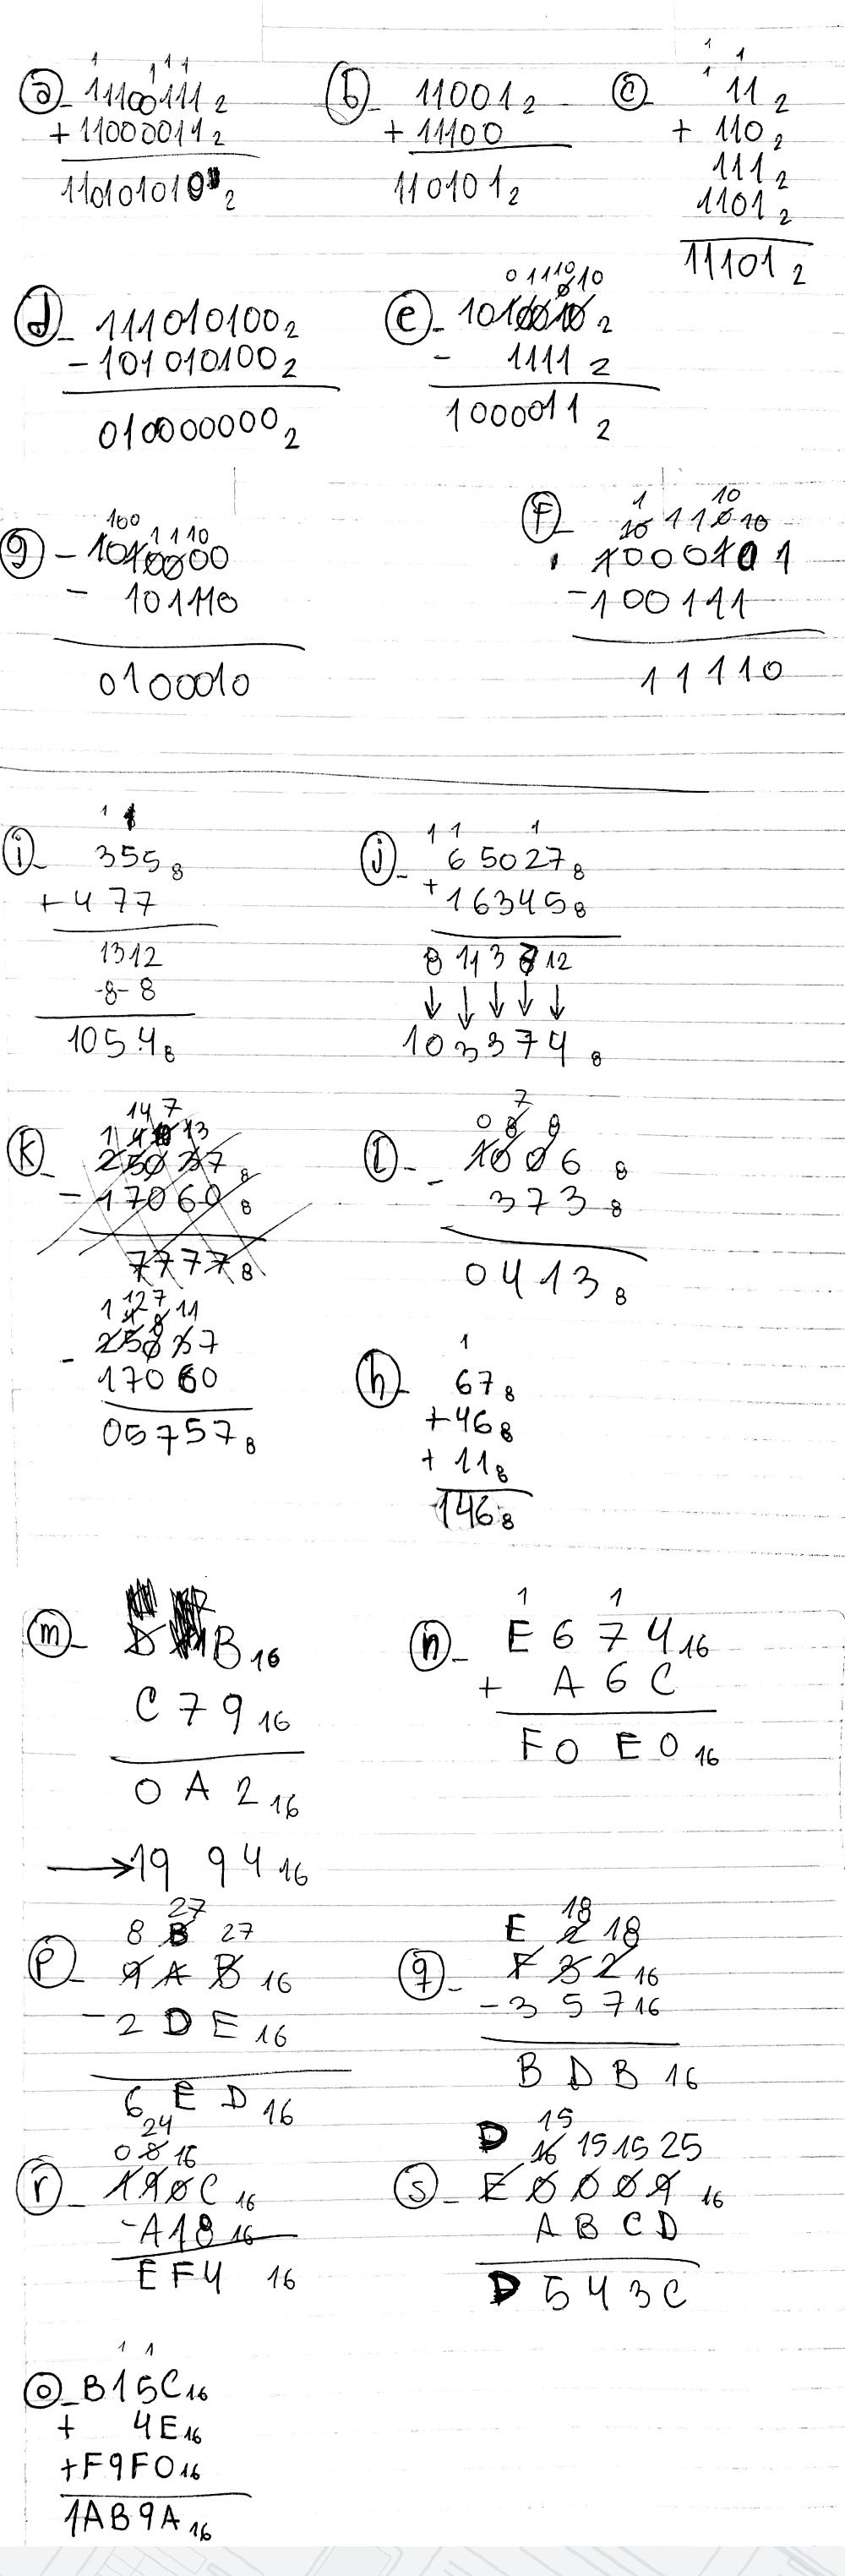 1 1 1 1
a- 11100111 2
+11000011 2
110101010 2
b- 11001 2
+11100
110101 2
1 1
1
c- 11 2
+ 110 2
111 2
1101 2
11101 2
d- 111010100 2
-101010100 2
010000000 2
0 1 1 10 10
0
e- 1010010 2
- 1111 2
1000011 2
100
1 1 10
g- 1010000
- 101110
0100010
1 10
f- 10 1 1 0 10
1000101
-100111
11110
1 1
i- 355 8
+477
1312
-8-8
1054 8
1 1 1
j- 65027 8
+16345 8
8 11 3 7 12
↓ ↓ ↓ ↓ ↓
103374 8
14 7
1 4 13
k- 25037 8
-17060 8
7777 8
12 7
1 4 8 11
25037
- 17060
05757 8
7
0 8 8
l- 1006 8
- 373 8
0413 8
1
h- 67 8
+46 8
+ 11 8
146 8
m- D B 16
C79 16
0A2 16
→19 94 16
1 1
n- E674 16
+ A6C
F0E0 16
27
8 B 27
p- 9AB 16
-2DE 16
6ED 16
18
E 2 18
q- F32 16
-357 16
BDB 16
24
0 8 16
r- 190C 16
-A18 16
EF4 16
15
D 16 15 15 25
s- E0009 16
ABCD
D543C
1 1
o- B15C 16
+ 4E 16
+F9F0 16
1AB9A 16